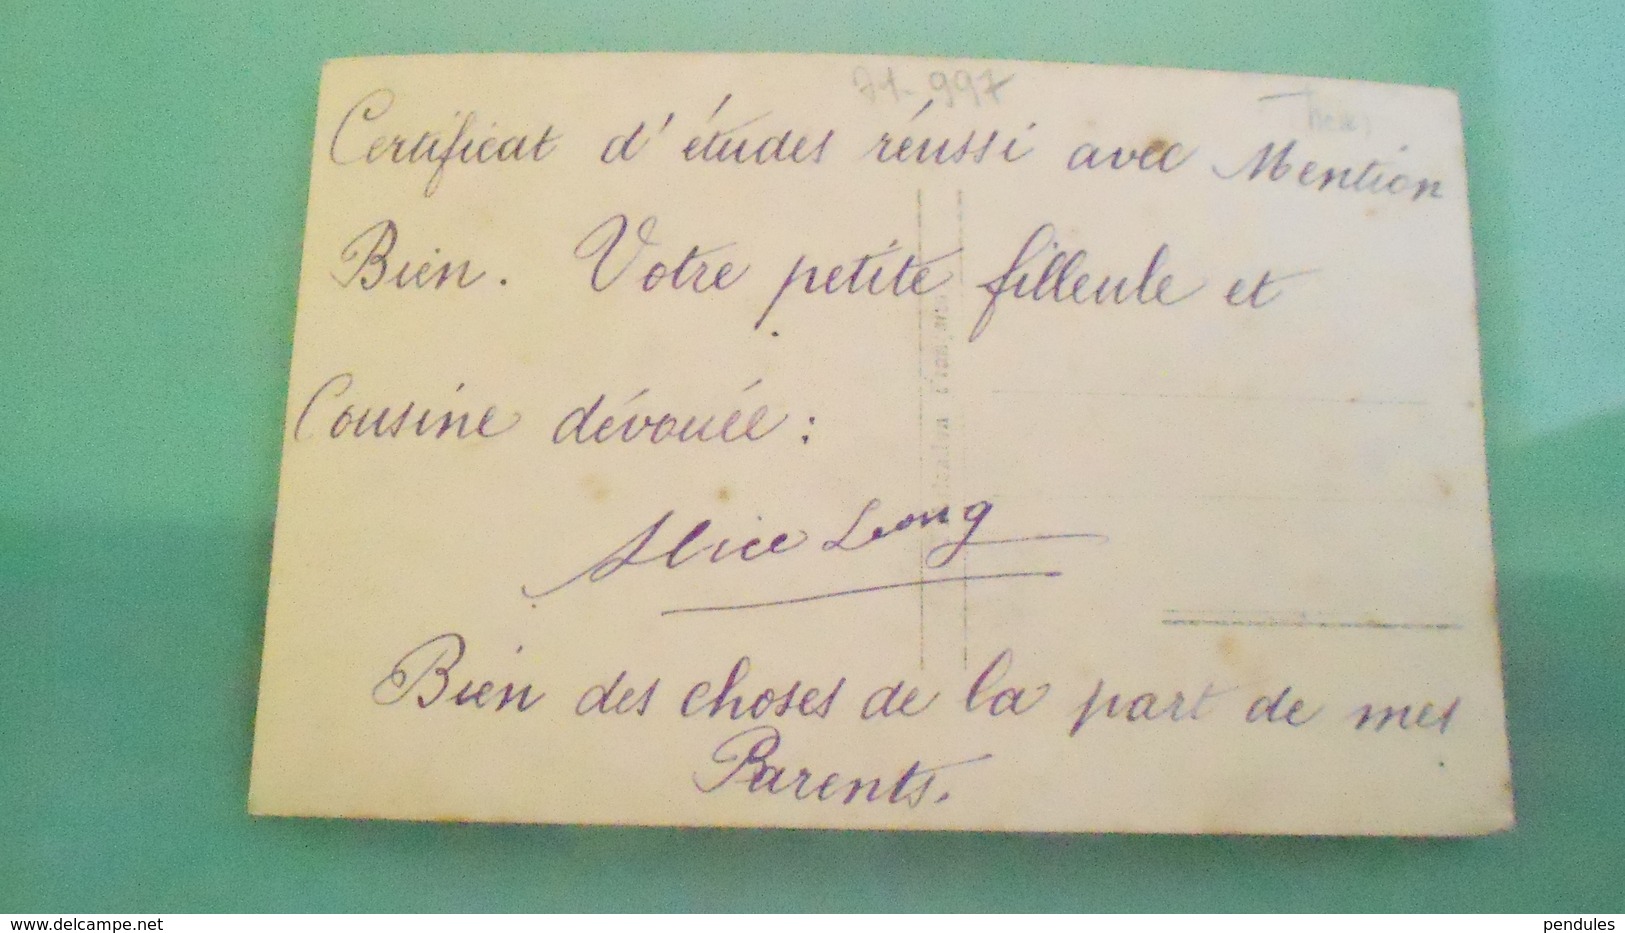 Certificat d'études réussi avec Mention
Bien. Votre petite filleule et
Cousine dévouée :
Alice Long
Bien des choses de la part de mes
Parents.
www.delcampe.net
pendules